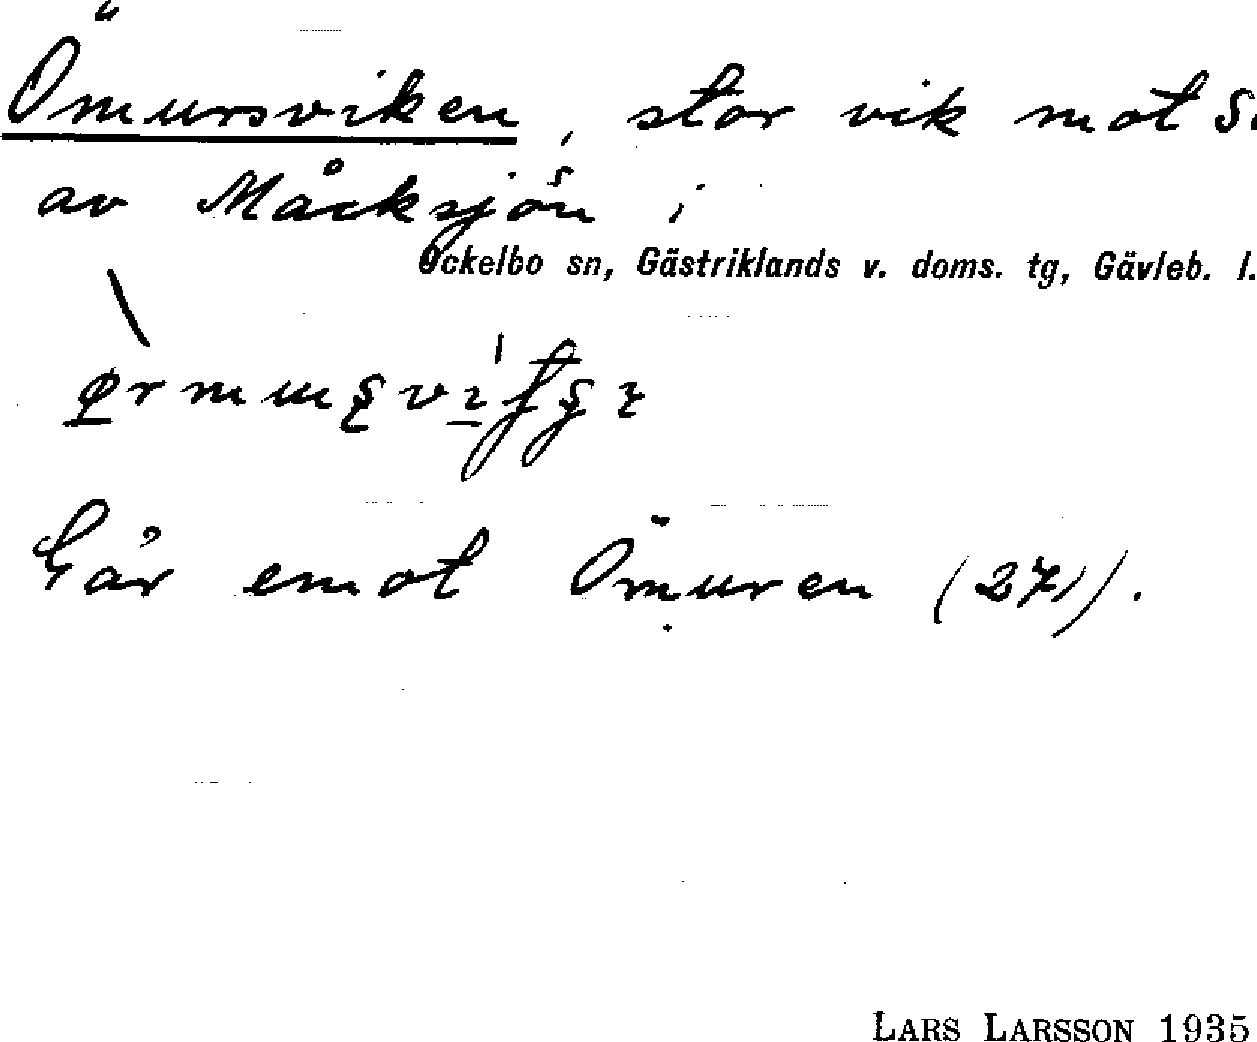 Ömursviken, stor vik mot S.
av Måcksjön i
Ockelbo sn, Gästriklands v. doms. tg, Gävleb. l.
Går emot Ömuren (271).
LARS LARSSON 1935